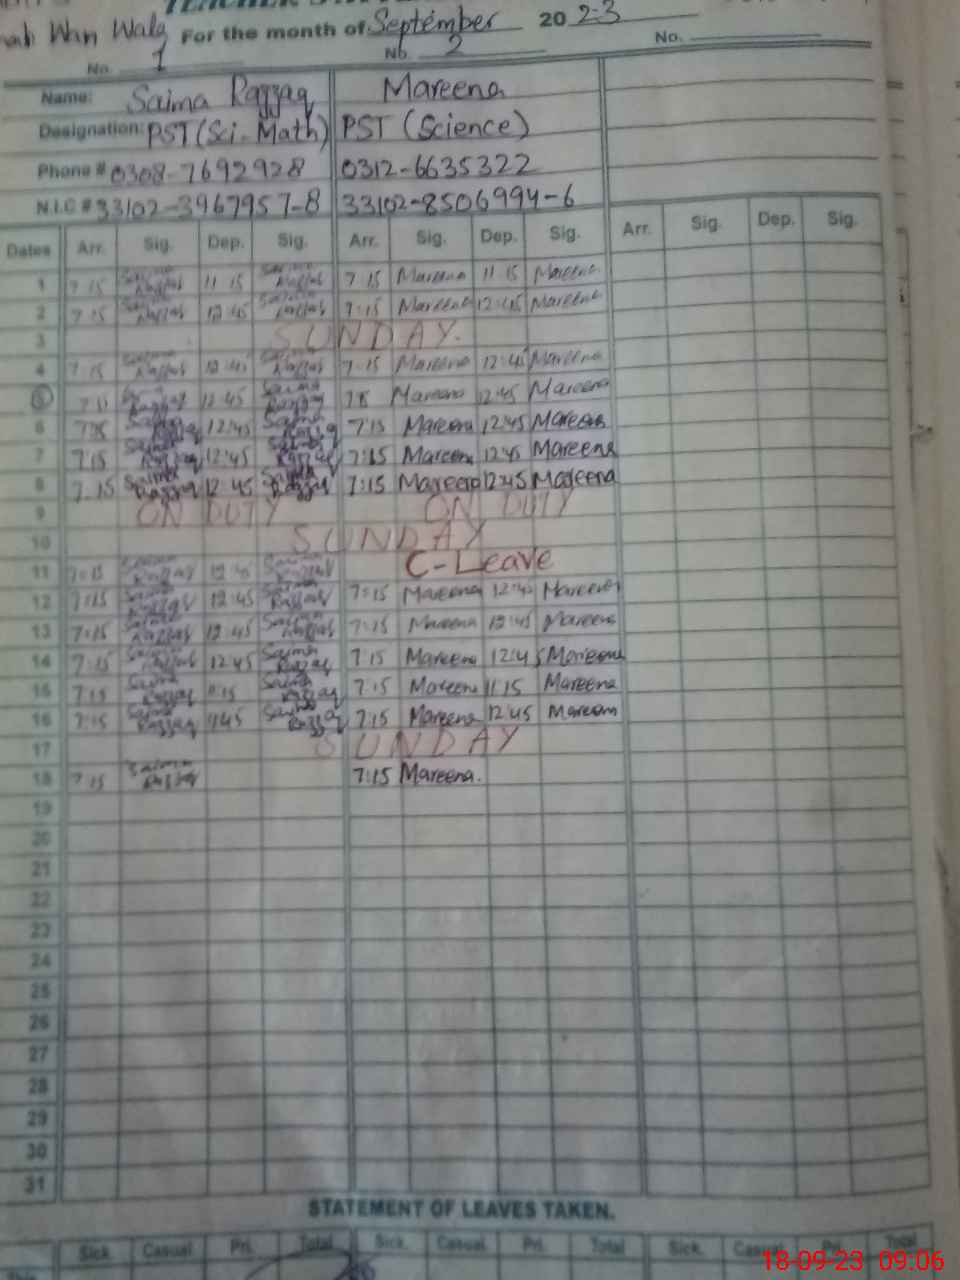 Wan Wala For the month of September 2023
No. 1 No. 2 No.
Name: Saima Razzaq Mareena
Designation: PST (Sci-Math) PST (Science)
Phone # 0308-7692928 0312-6635322
N.I.C # 33102-3967957-8 33102-8506994-6
Dates Arr. Sig. Dep. Sig. Arr. Sig. Dep. Sig. Arr. Sig. Dep. Sig.
1 7 15 Saima Razzaq 11 15 Saima Razzaq 7 15 Mareena 11 15 Mareena
2 7:15 Saima Razzaq 12:45 Saima Razzaq 7:15 Mareena 12:45 Mareena
3 SUNDAY.
4 7:15 Saima Razzaq 12:45 Saima Razzaq 7:15 Mareena 12:45 Mareena
5 Razzaq 12:45 Saima Razzaq Mareena 12:45 Mareena
6 Saima Razzaq 12:45 Saima Razzaq 7:15 Mareena 12:45 Mareena
7 7:15 Saima Razzaq 12:45 Saima Razzaq 7:15 Mareena 12:45 Mareena
8 7.15 Saima Razzaq 12:45 Saima Razzaq 7:15 Mareena 12:45 Mareena
9 ON DUTY ON DUTY
10 SUNDAY
11 7:15 Saima Razzaq 12:45 Saima Razzaq C-Leave
12 7:15 Saima Razzaq 12:45 Saima Razzaq 7:15 Mareena 12:45 Mareena
13 7:15 Saima Razzaq 12:45 Saima Razzaq 7:15 Mareena 12:45 Mareena
14 7:15 Saima Razzaq 12:45 Saima Razzaq 7:15 Mareena 12:45 Mareena
15 7:15 Saima Razzaq 11:15 Saima Razzaq 7:15 Mareena 11:15 Mareena
16 7:15 Saima Razzaq Saima Razzaq 7:15 Mareena 12:45 Mareena
17 SUNDAY
18 7:15 Saima Razzaq 7:15 Mareena.
19
20
21
22
23
24
25
26
27
28
29
30
31
STATEMENT OF LEAVES TAKEN.
Sick Casual Pri. Total Sick. Casual. Pri. Total Sick. Casual Pri. Total
18-09-23 09:06